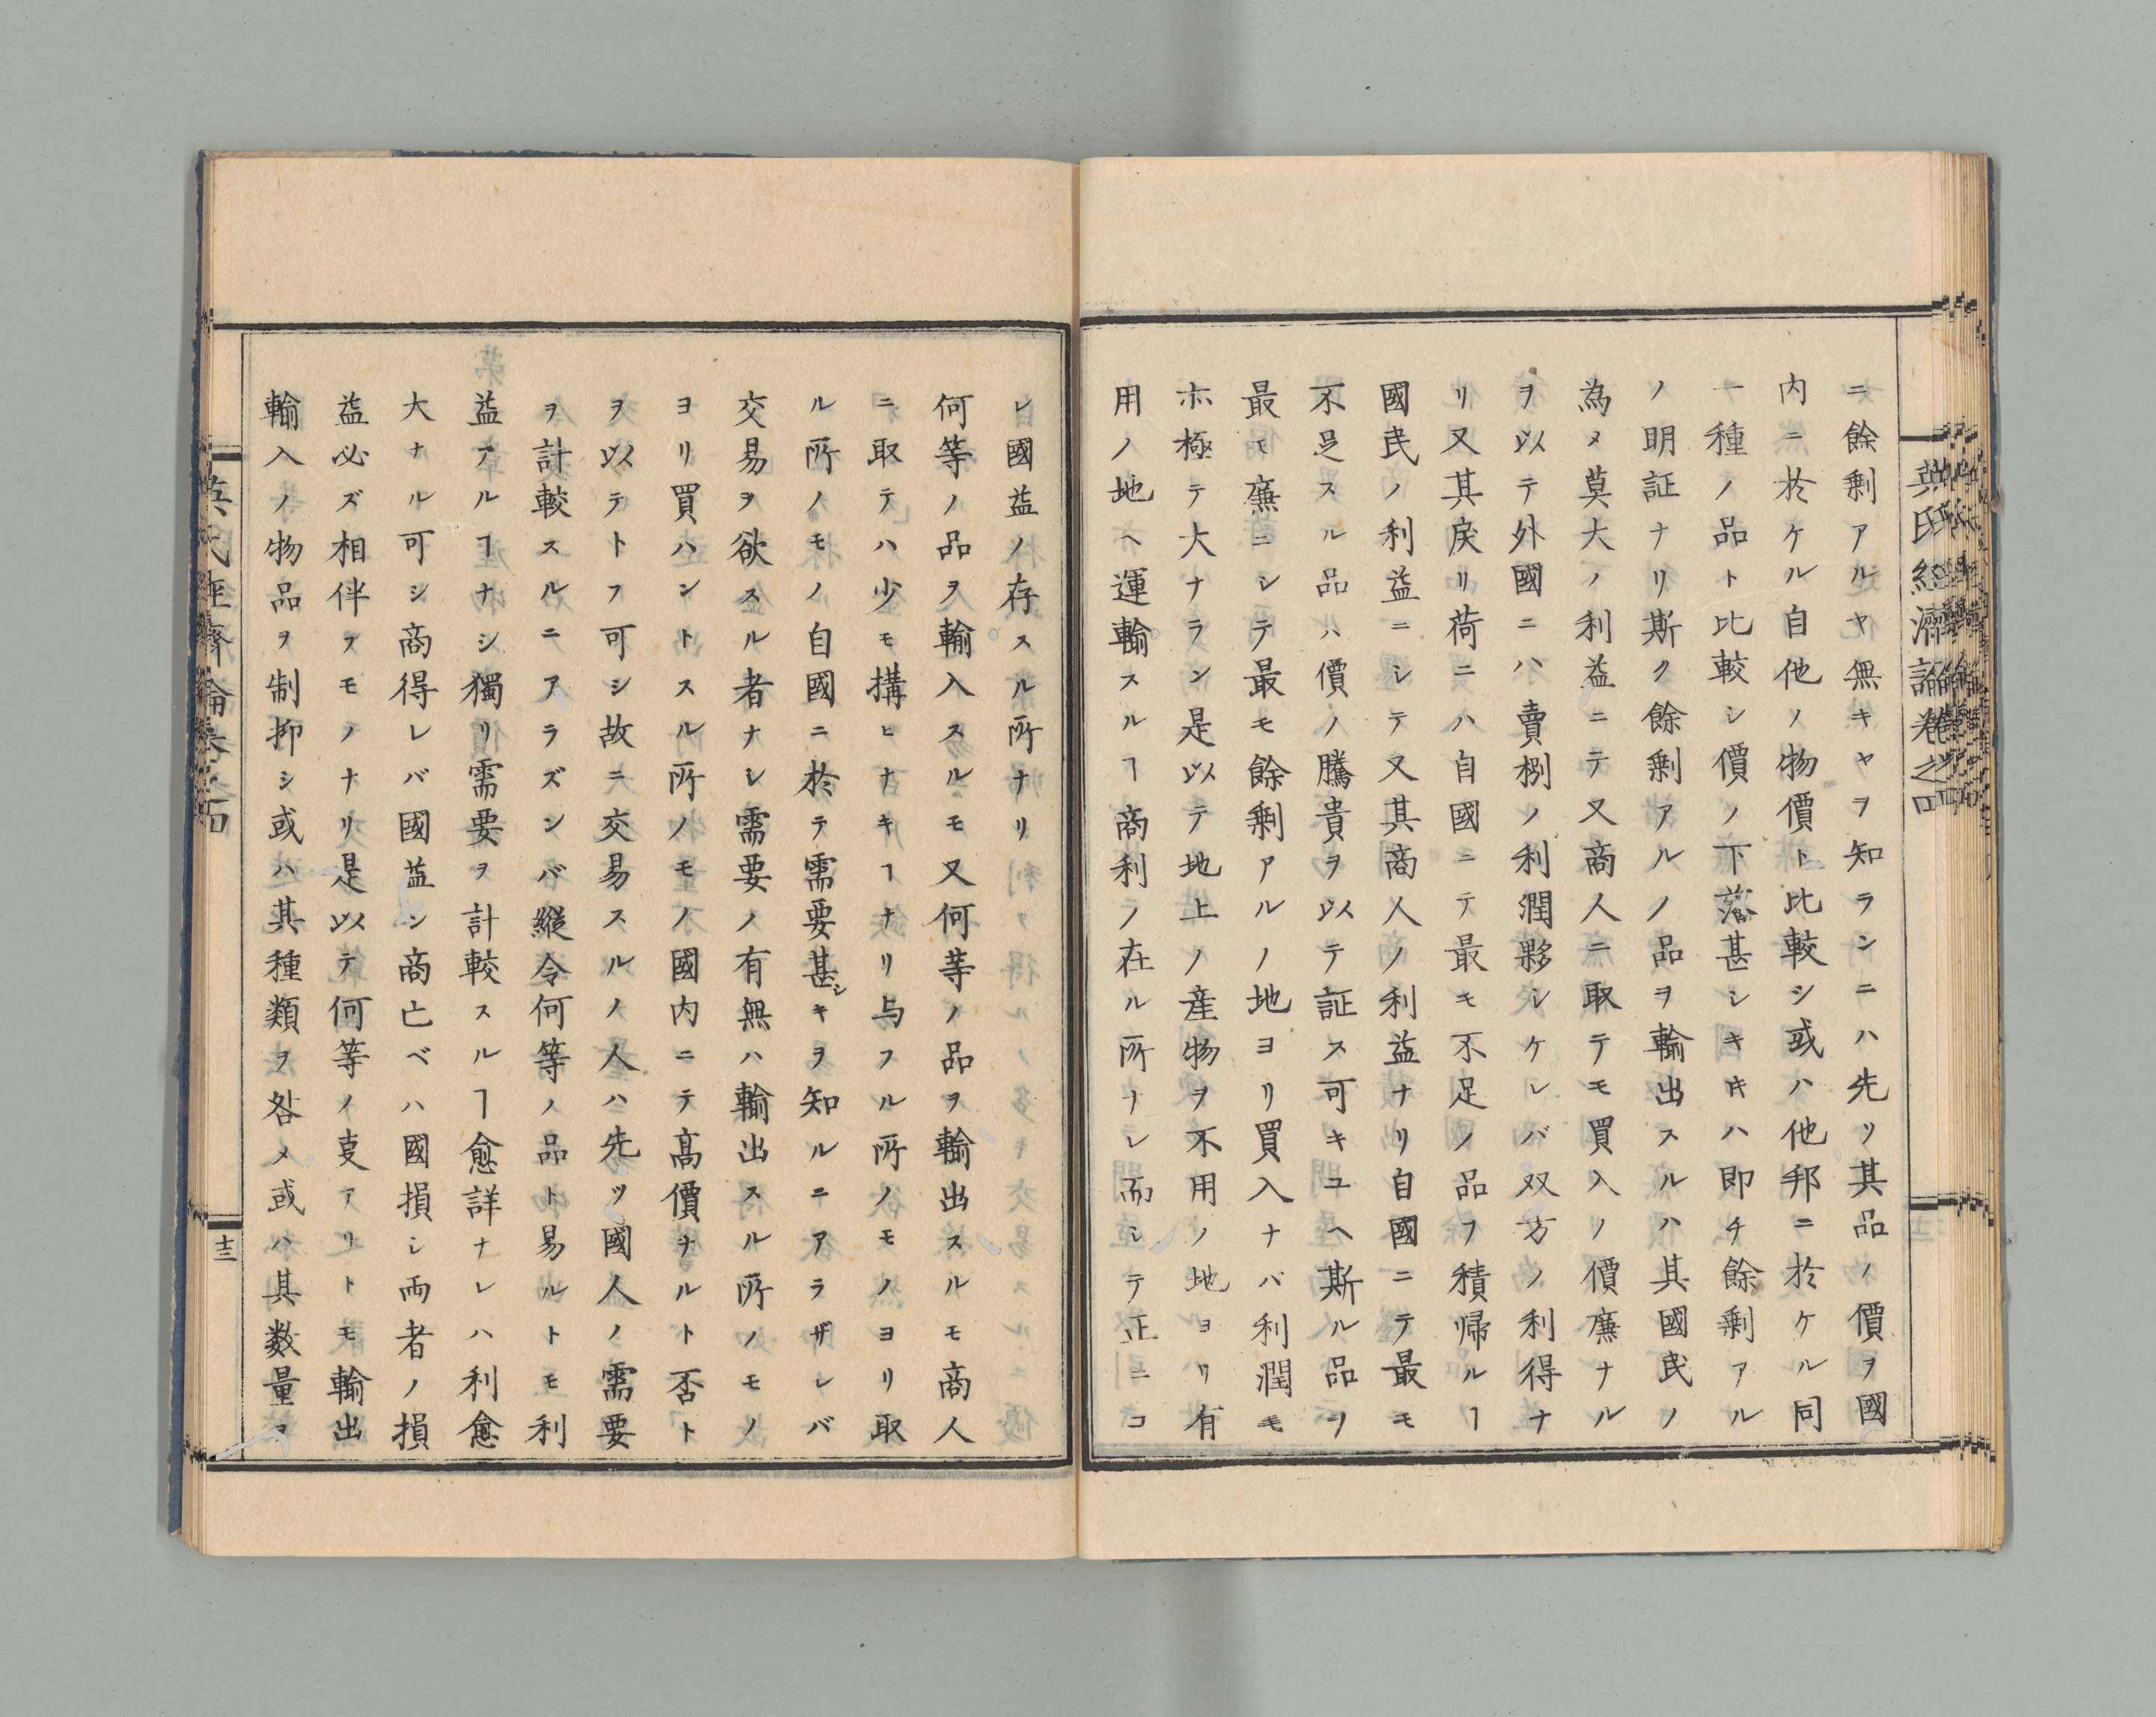 英氏經濟論卷之四
ニ餘剩アルヤ無キヤヲ知ランニハ先ツ其品ノ價ヲ國
内ニ於ケル自他ノ物價ト比較シ或ハ他邦ニ於ケル同
一種ノ品ト比較シ價ノ下落甚シキヰハ即チ餘剩アル
ノ明証ナリ斯ク餘剩アルノ品ヲ輸出スルハ其國民ノ
為メ莫大ノ利益ニテ又商人ニ取テモ買入ノ價廉ナル
ヲ以テ外國ニハ賣捌ノ利潤夥シケレバ双方ノ利得ナ
リ又其戻リ荷ニハ自國ニテ最モ不足ノ品ヲ積帰ルヿ
國民ノ利益ニシテ又其商人ノ利益ナリ自國ニテ最モ
不足スル品ハ價ノ騰貴ヲ以テ証ス可キユヘ斯ル品ヲ
最モ廉ニシテ最モ餘剩アルノ地ヨリ買入ナバ利潤モ
亦極テ大ナラン是以テ地上ノ産物ヲ不用ノ地ヨリ有
用ノ地ヘ運輸スルヿ商利ノ在ル所ナレ而シテ正ニコ
レ國益ノ存スル所ナリ
何等ノ品ヲ輸入スルモ又何等ノ品ヲ輸出スルモ商人
ニ取テハ少モ搆ヒナキヿナリ与フル所ノモノヨリ取
ル所ノモノ自國ニ於テ需要甚シキヲ知ルニアラザレバ
交易ヲ欲スル者ナシ需要ノ有無ハ輸出スル所ノモノ
ヨリ買ハントスル所ノモノ國内ニテ高價ナルト否ト
ヲ以テトフ可シ故ニ交易スルノ人ハ先ツ國人ノ需要
ヲ計較スルニアラズンバ縱令何等ノ品ト易ルトモ利
益アルヿナシ獨リ需要ヲ計較スルヿ愈詳ナレハ利愈
大ナル可シ商得レバ國益シ商亡ベハ國損シ両者ノ損
益必ズ相伴フモノナリ是以テ何等ノ叓アリトモ輸出
輸入ノ物品ヲ制抑シ或ハ其種類ヲ咎メ或ハ其数量ヲ
英氏經濟論卷之四
十三